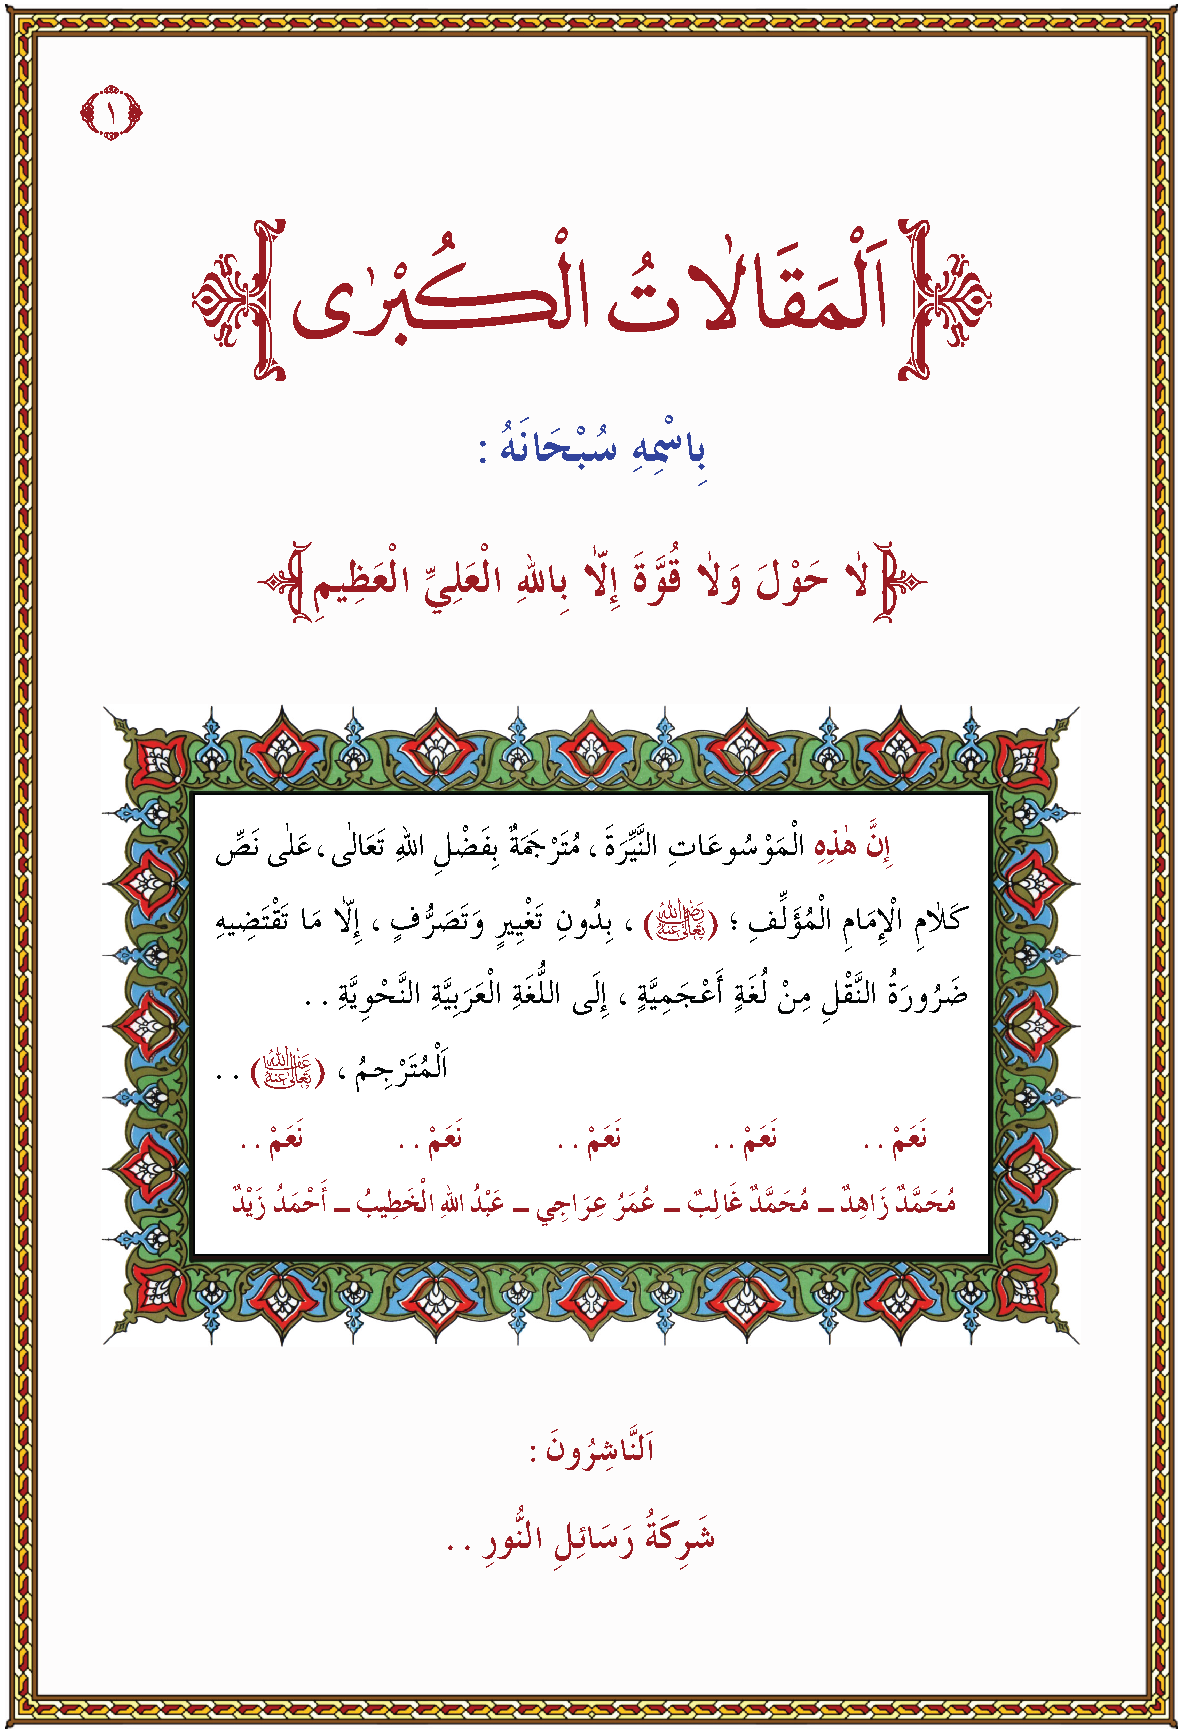 ١
اَلْمَقَالَاتُ الْكُبْرٰى
بِاسْمِهِ سُبْحَانَهُ :
لَا حَوْلَ وَلَا قُوَّةَ إِلَّا بِاللهِ الْعَلِيِّ الْعَظِيمِ
إِنَّ هٰذِهِ الْمَوْسُوعَاتِ النَّيِّرَةَ ، مُتَرْجَمَةٌ بِفَضْلِ اللهِ تَعَالٰى ، عَلٰى نَصِّ
كَلَامِ الْإِمَامِ الْمُؤَلِّفِ ؛ (رَضِيَ اللهُ تَعَالٰى عَنْهُ) ، بِدُونِ تَغْيِيرٍ وَتَصَرُّفٍ ، إِلَّا مَا تَقْتَضِيهِ
ضَرُورَةُ النَّقْلِ مِنْ لُغَةٍ أَعْجَمِيَّةٍ ، إِلَى اللُّغَةِ الْعَرَبِيَّةِ النَّحْوِيَّةِ . .
اَلْمُتَرْجِمُ ، (عَفَا اللهُ تَعَالٰى عَنْهُ) . .
نَعَمْ . . نَعَمْ . . نَعَمْ . . نَعَمْ . . نَعَمْ . .
مُحَمَّدٌ زَاهِدٌ ـ مُحَمَّدٌ غَالِبٌ ـ عُمَرُ عِرَاجِي ـ عَبْدُ اللهِ الْخَطِيبُ ـ أَحْمَدُ زَيْدٌ
اَلنَّاشِرُونَ :
شَرِكَةُ رَسَائِلِ النُّورِ . .